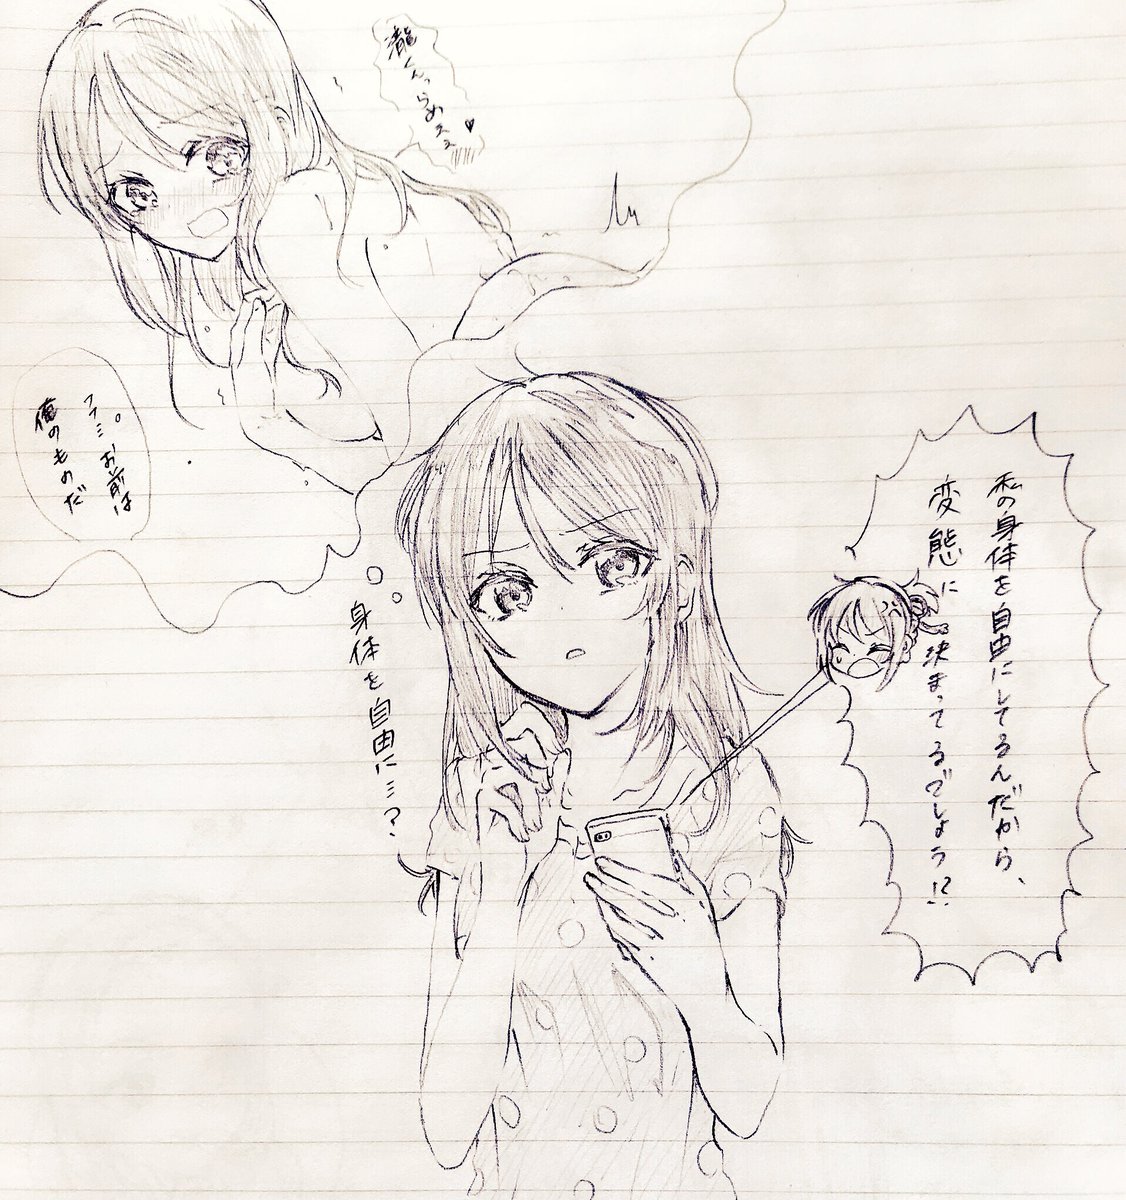 私の身体を自由にしてるんだから、
変態に決まってるでしょう!?
身体を自由に…?
瀧くんっらめえぇ♥
ファミ。お前は
俺のものだ